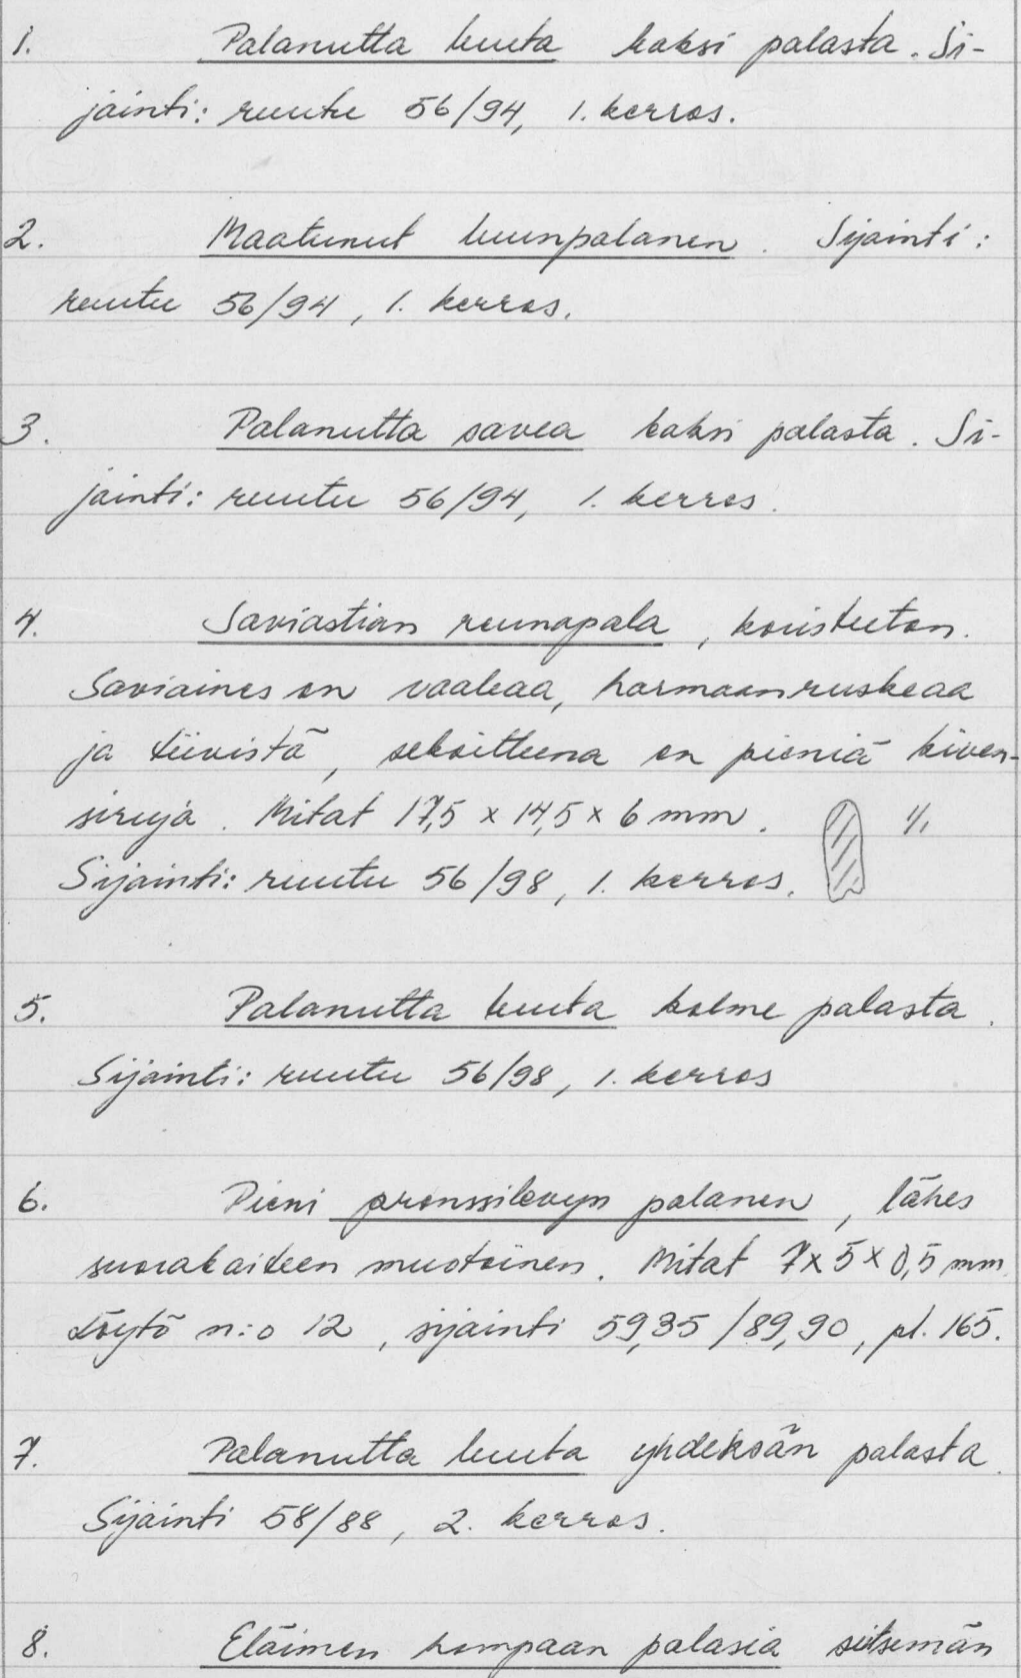 1. Palanutta luuta kaksi palasta. Si-
jainti: ruutu 56/94, 1. kerros.
2. Maatunut luunpalanen. Sijainti:
ruutu 56/94, 1. kerros.
3. Palanutta savea kaksi palasta. Si-
jainti: ruutu 56/94, 1. kerros.
4. Saviastian reunapala, koristeeton.
Saviaines on vaaleaa, harmaanruskeaa
ja tiivistä, sekoitteena on pieniä kiven-
siruja. Mitat 17,5 x 14,5 x 6 mm. 1/1
Sijainti: ruutu 56/98, 1. kerros.
5. Palanutta luuta kolme palasta.
Sijainti: ruutu 56/98, 1. kerros
6. Pieni pronssilevyn palanen, lähes
suorakaiteen muotoinen. Mitat 7 x 5 x 0,5 mm
Löytö n:o 12, sijainti 59,35/89,90, pl. 165.
7. Palanutta luuta yhdeksän palasta.
Sijainti 58/88, 2. kerros.
8. Eläimen hampaan palasia seitsemän